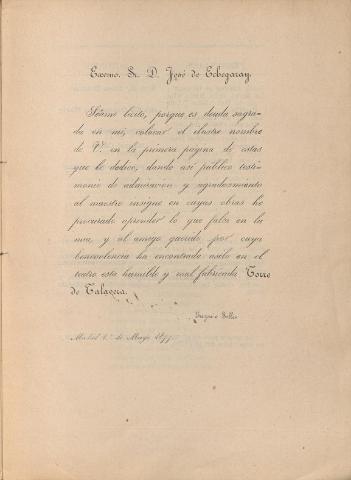 Excmo. Sr. D. José de Echegaray.
Séame lícito, porque es deuda sagra-
da en mí, colocar el ilustre nombre
de V. en la primera página de estas
que le dedico, dando así público testi-
monio de admiración y agradecimiento
al maestro insigne en cuyas obras he
procurado aprender lo que falta en la
mia, y al amigo querido por cuya
benevolencia ha encontrado asilo en el
teatro esta humilde y mal fabricada Torre
de Talavera.
Eugenio Sellés
Madrid 1.º de Mayo 1877